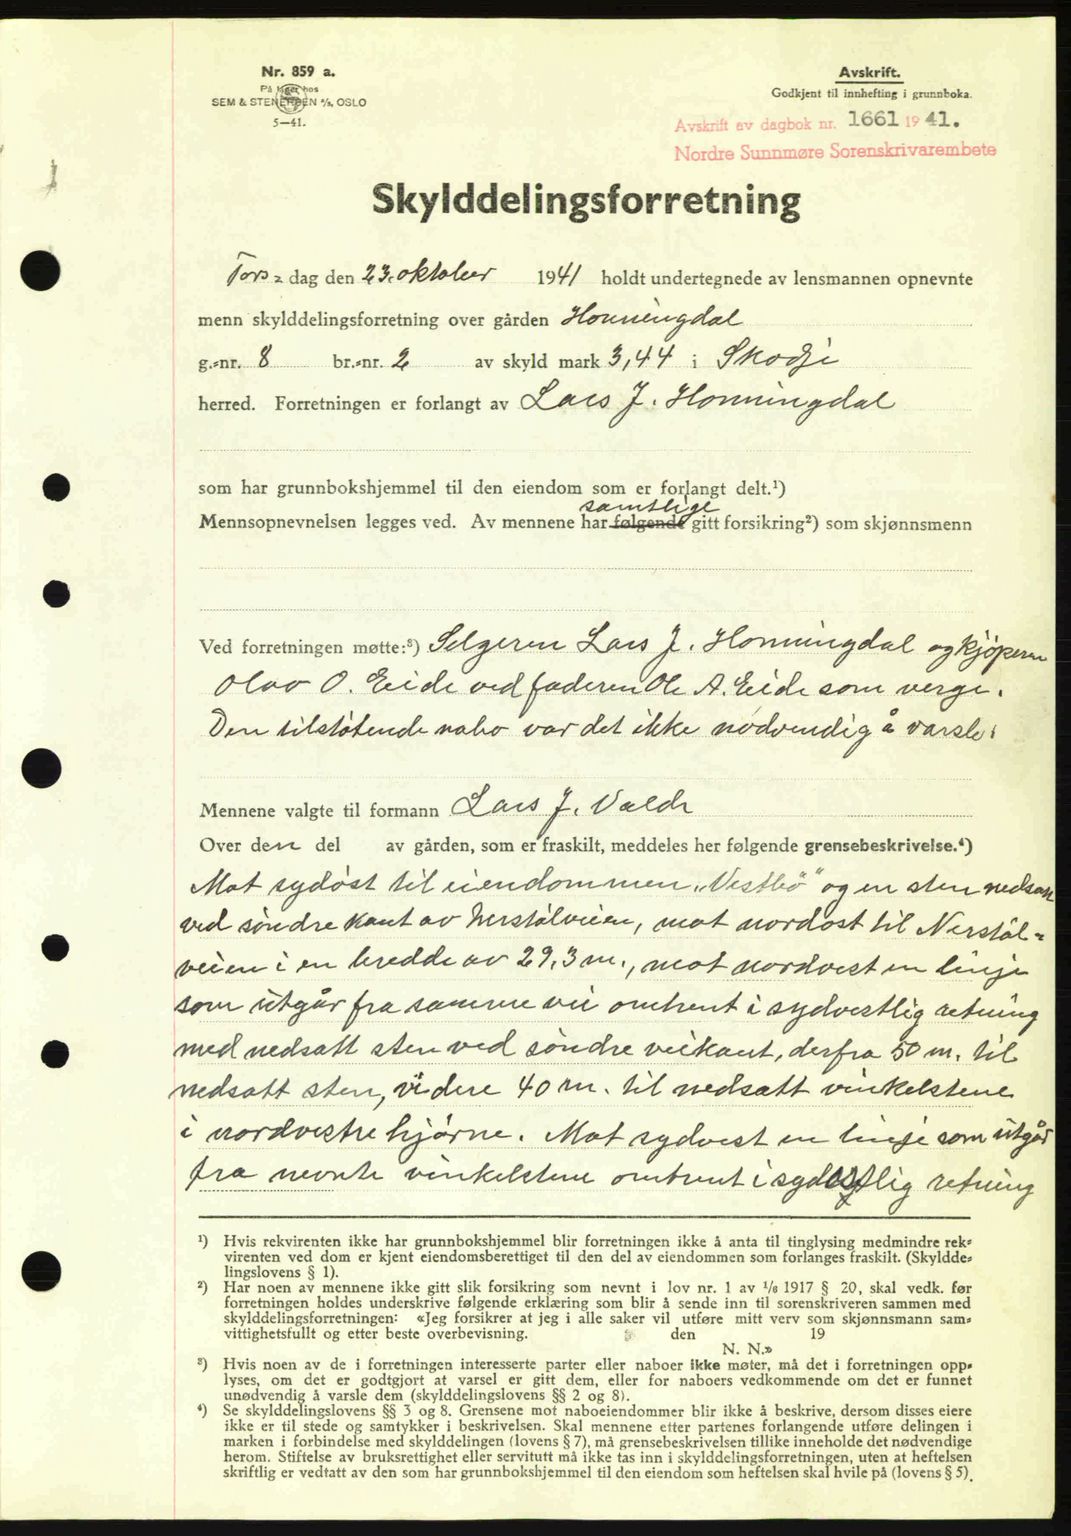 Nr. 859 a.
På lager hos
SEM & STENERSEN A/S, OSLO
5—41.
Avskrift.
Godkjent til innhefting i grunnboka.
Avskrift av dagbok nr. 1661 1941.
Nordre Sunnmøre Sorenskrivarembete
Skylddelingsforretning
Tors- dag den 23. oktober 1941 holdt undertegnede av lensmannen opnevnte
menn skylddelingsforretning over gården Honningdal
g.-nr. 8 br.-nr. 2 av skyld mark 3,44 i Skodje
herred. Forretningen er forlangt av Lars J. Honningdal
som har grunnbokshjemmel til den eiendom som er forlangt delt.¹)
samtlige
Mennsopnevnelsen legges ved. Av mennene har følgende gitt forsikring²) som skjønnsmenn
Ved forretningen møtte:³) Selgeren Lars J. Honningdal og kjöperen
Olav O. Eide ved faderen Ole A. Eide som verge.
Den tilstötende nabo var det ikke nödvendig å varsle.
Mennene valgte til formann Lars J. Valde
Over den del av gården, som er fraskilt, meddeles her følgende grensebeskrivelse.⁴)
Mot sydöst til eiendommen „Vestbö" og en sten nedsatt
ved söndre kant av Nerstölveien, mot nordost til Nerstöl-
veien i en bredde av 29,3 m., mot nordvest en linje
som utgår fra samme vei omtrent i sydvestlig retning
med nedsatt sten ved söndre veikant, derfra 50 m. til
nedsatt sten, videre 40 m. til nedsatt vinkelstene
i nordvestre hjörne. Mot sydvest en linje som utgår
fra nevnte vinkelstene omtrent i sydöstlig retning
¹) Hvis rekvirenten ikke har grunnbokshjemmel blir forretningen ikke å anta til tinglysing medmindre rek-
virenten ved dom er kjent eiendomsberettiget til den del av eiendommen som forlanges fraskilt. (Skyldde-
lingslovens § 1).
²) Har noen av mennene ikke gitt slik forsikring som nevnt i lov nr. 1 av 1/6 1917 § 20, skal vedk. før
forretningen holdes underskrive følgende erklæring som blir å sende inn til sorenskriveren sammen med
skylddelingsforretningen: «Jeg forsikrer at jeg i alle saker vil utføre mitt verv som skjønnsmann sam-
vittighetsfullt og etter beste overbevisning. den 19
N. N.»
³) Hvis noen av de i forretningen interesserte parter eller naboer ikke møter, må det i forretningen opp-
lyses, om det er godtgjort at varsel er gitt dem, eller for naboers vedkommende om det er funnet
unødvendig å varsle dem (skylddelingslovens §§ 2 og 8).
⁴) Se skylddelingslovens §§ 3 og 8. Grensene mot naboeiendommer blir ikke å beskrive, dersom disses eiere
ikke er til stede og samtykker i beskrivelsen. Skal mennene etter partenes forlangende utføre delingen i
marken i forbindelse med skylddelingen (lovens § 7), må grensebeskrivelsen tillike inneholde det nødvendige
herom. Stiftelse av bruksrettighet eller servitutt må ikke tas inn i skylddelingsforretningen, uten at heftelsen
skriftlig er vedtatt av den som har grunnbokshjemmel til den eiendom som heftelsen skal hvile på (lovens § 5).